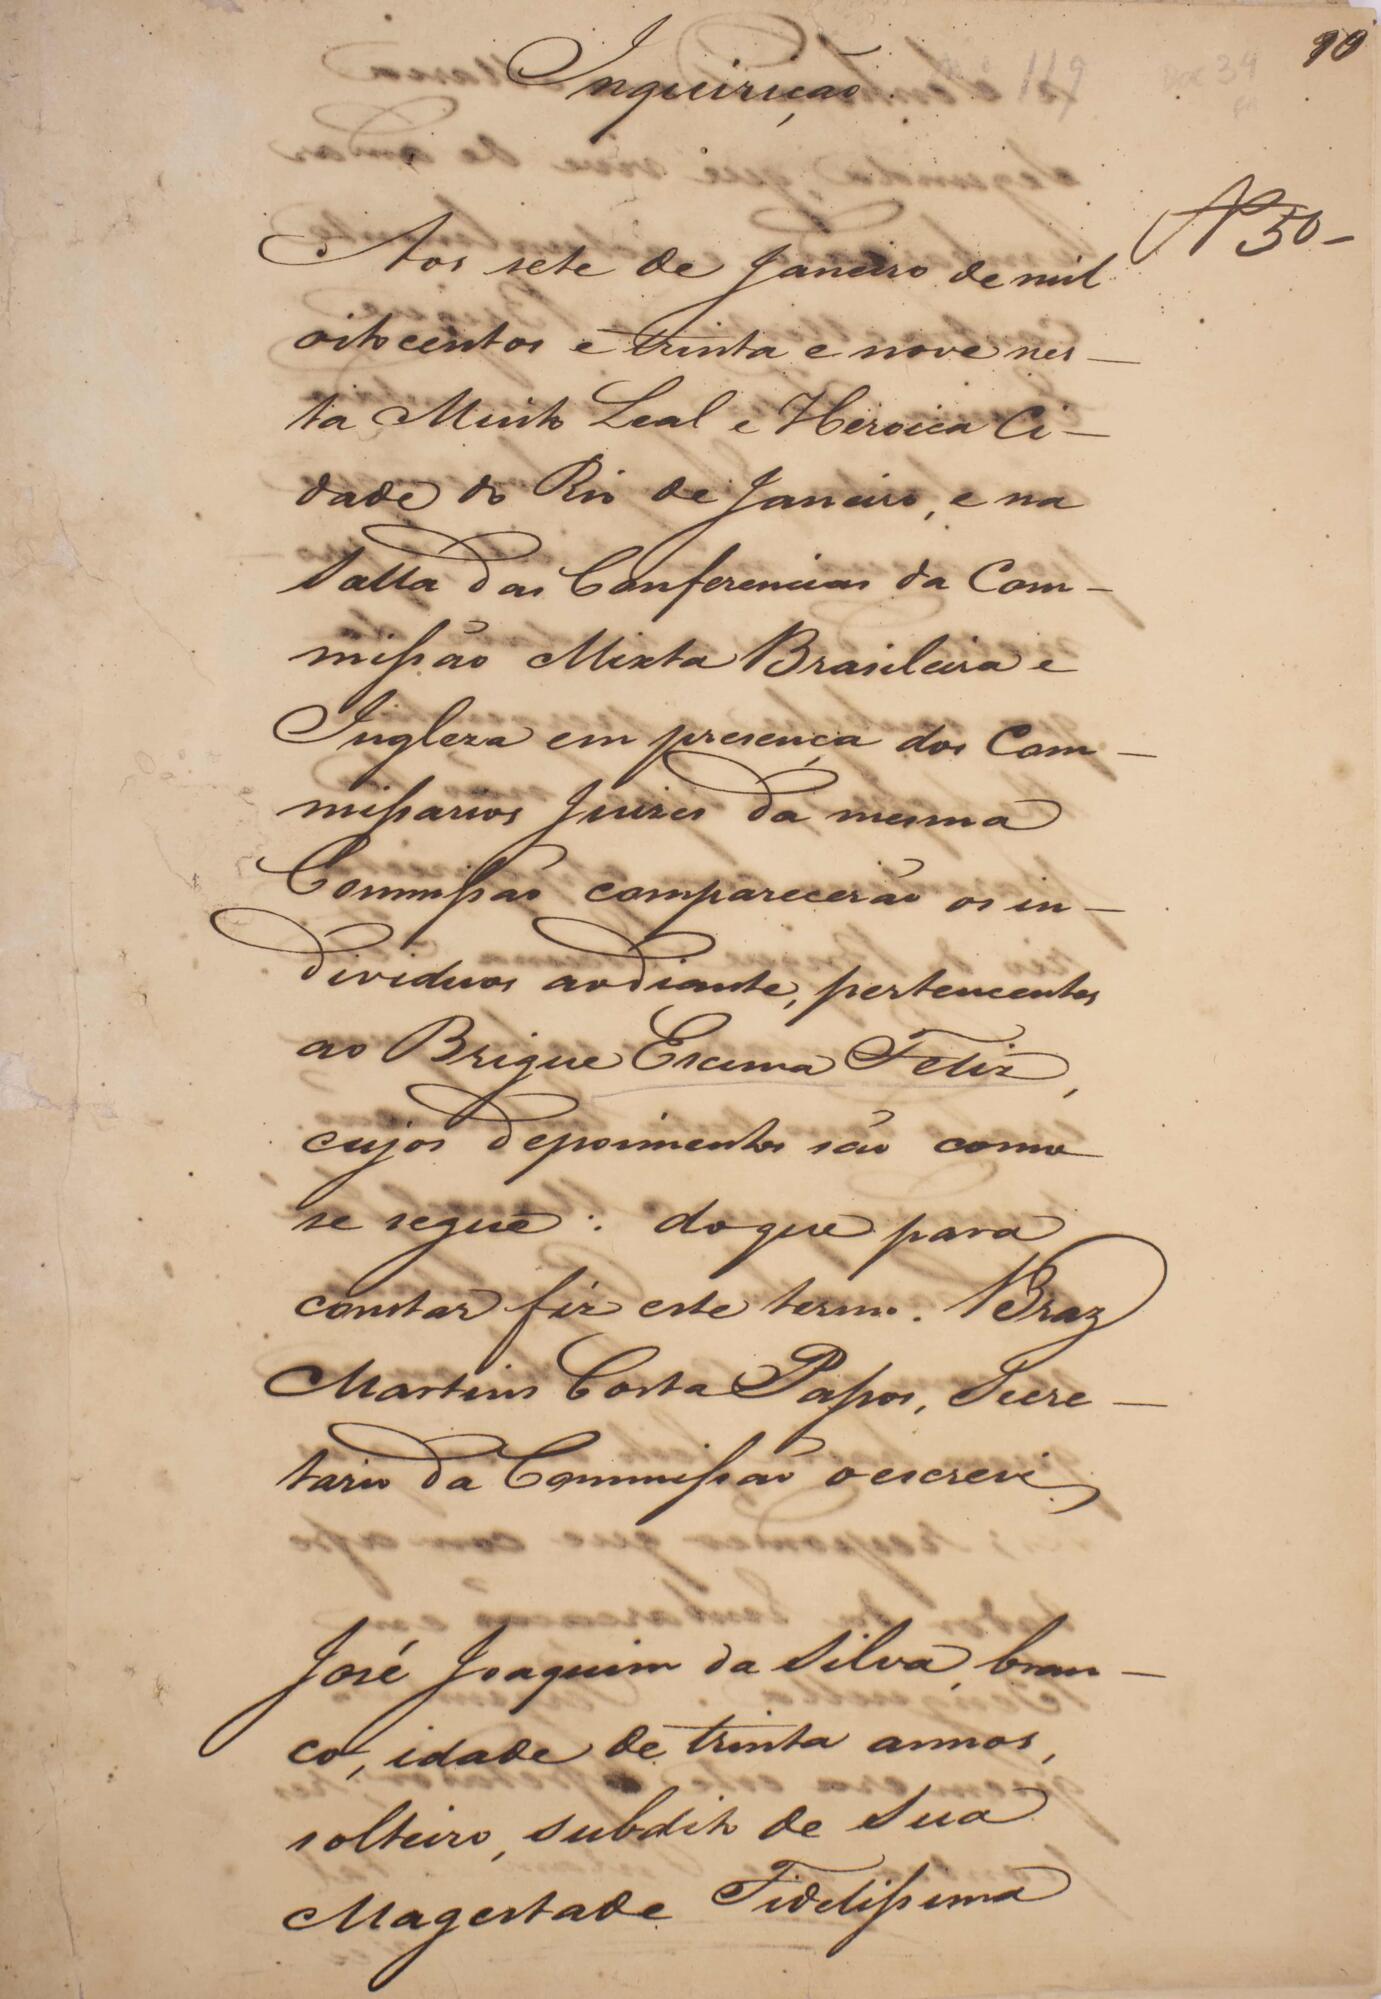 Inquirição.
119
Doc 34
Nº 50-
Aos sete de Janeiro de mil
oitocentos e trinta e nove nes-
ta Muito Leal e Heroica Ci-
dade do Rio de Janeiro, e na
Salla das Conferencias da Com-
missão Mixta Brasileira e
Ingleza em presença dos Com-
missarios Juizes da mesma
Commissão comparecerão os in-
dividuos aodiante, pertencentes
ao Brigue Escuna Feliz,
cujos depoimentos são como
se segue: do que para
constar fiz este termo. Braz
Martins Costa Passos, Secre-
tario da Commissão o escrevi
José Joaquim da Silva, bran-
co, idade de trinta annos,
solteiro, subdito de Sua
Magestade Fidelissima